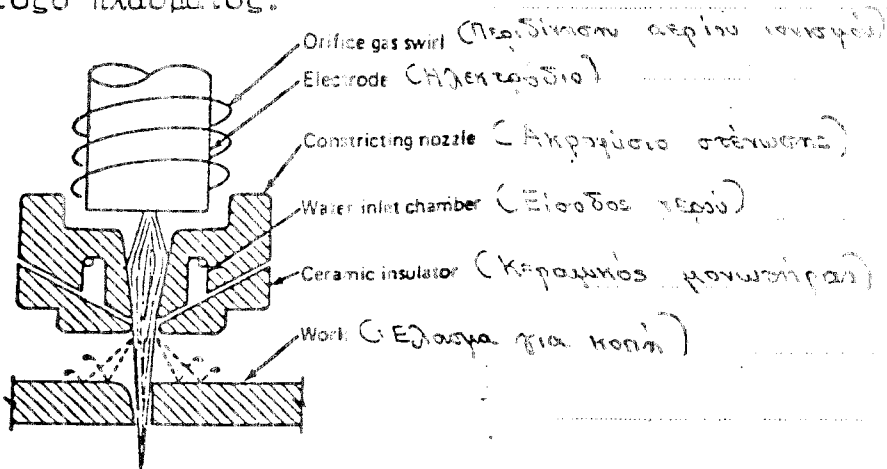 τόξο πλάσματος.
Orifice gas swirl (Περιδίνηση αερίου ιονισμού)
Electrode (Ηλεκτρόδιο)
Constricting nozzle (Ακροφύσιο στένωσης)
Water inlet chamber (Είσοδος νερού)
Ceramic insulator (Κεραμικός μονωτήρας)
Work (Έλασμα για κοπή)